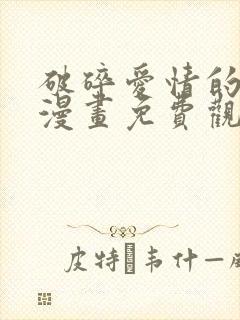 破碎愛情的
漫畫免費觀
皮特韦什—